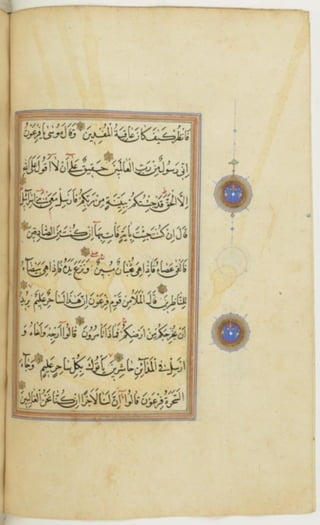 فَانْظُرْ كَيْفَ كَانَ عَاقِبَةُ الْمُفْسِدِينَ وَقَالَ مُوسَى يَا فِرْعَوْنُ
اِنِّي رَسُولٌ مِنْ رَبِّ الْعَالَمِينَ حَقِيقٌ عَلَى اَنْ لَا اَقُولَ عَلَى اللهِ
اِلَّا الْحَقَّ قَدْ جِئْتُكُمْ بِبَيِّنَةٍ مِنْ رَبِّكُمْ فَاَرْسِلْ مَعِيَ بَنِي اِسْرَائِيلَ
قَالَ اِنْ كُنْتَ جِئْتَ بِاٰيَةٍ فَأْتِ بِهَا اِنْ كُنْتَ مِنَ الصَّادِقِينَ
فَاَلْقَى عَصَاهُ فَاِذَا هِيَ ثُعْبَانٌ مُبِينٌ وَنَزَعَ يَدَهُ فَاِذَا هِيَ بَيْضَاءُ
لِلنَّاظِرِينَ قَالَ الْمَلَأُ مِنْ قَوْمِ فِرْعَوْنَ اِنَّ هٰذَا لَسَاحِرٌ عَلِيمٌ يُرِيدُ
اَنْ يُخْرِجَكُمْ مِنْ اَرْضِكُمْ فَمَاذَا تَأْمُرُونَ قَالُوا اَرْجِهْ وَاَخَاهُ وَ
اَرْسِلْ فِي الْمَدَائِنِ حَاشِرِينَ يَأْتُوكَ بِكُلِّ سَاحِرٍ عَلِيمٍ وَجَاءَ
السَّحَرَةُ فِرْعَوْنَ قَالُوا اِنَّ لَنَا لَاَجْرًا اِنْ كُنَّا نَحْنُ الْغَالِبِينَ